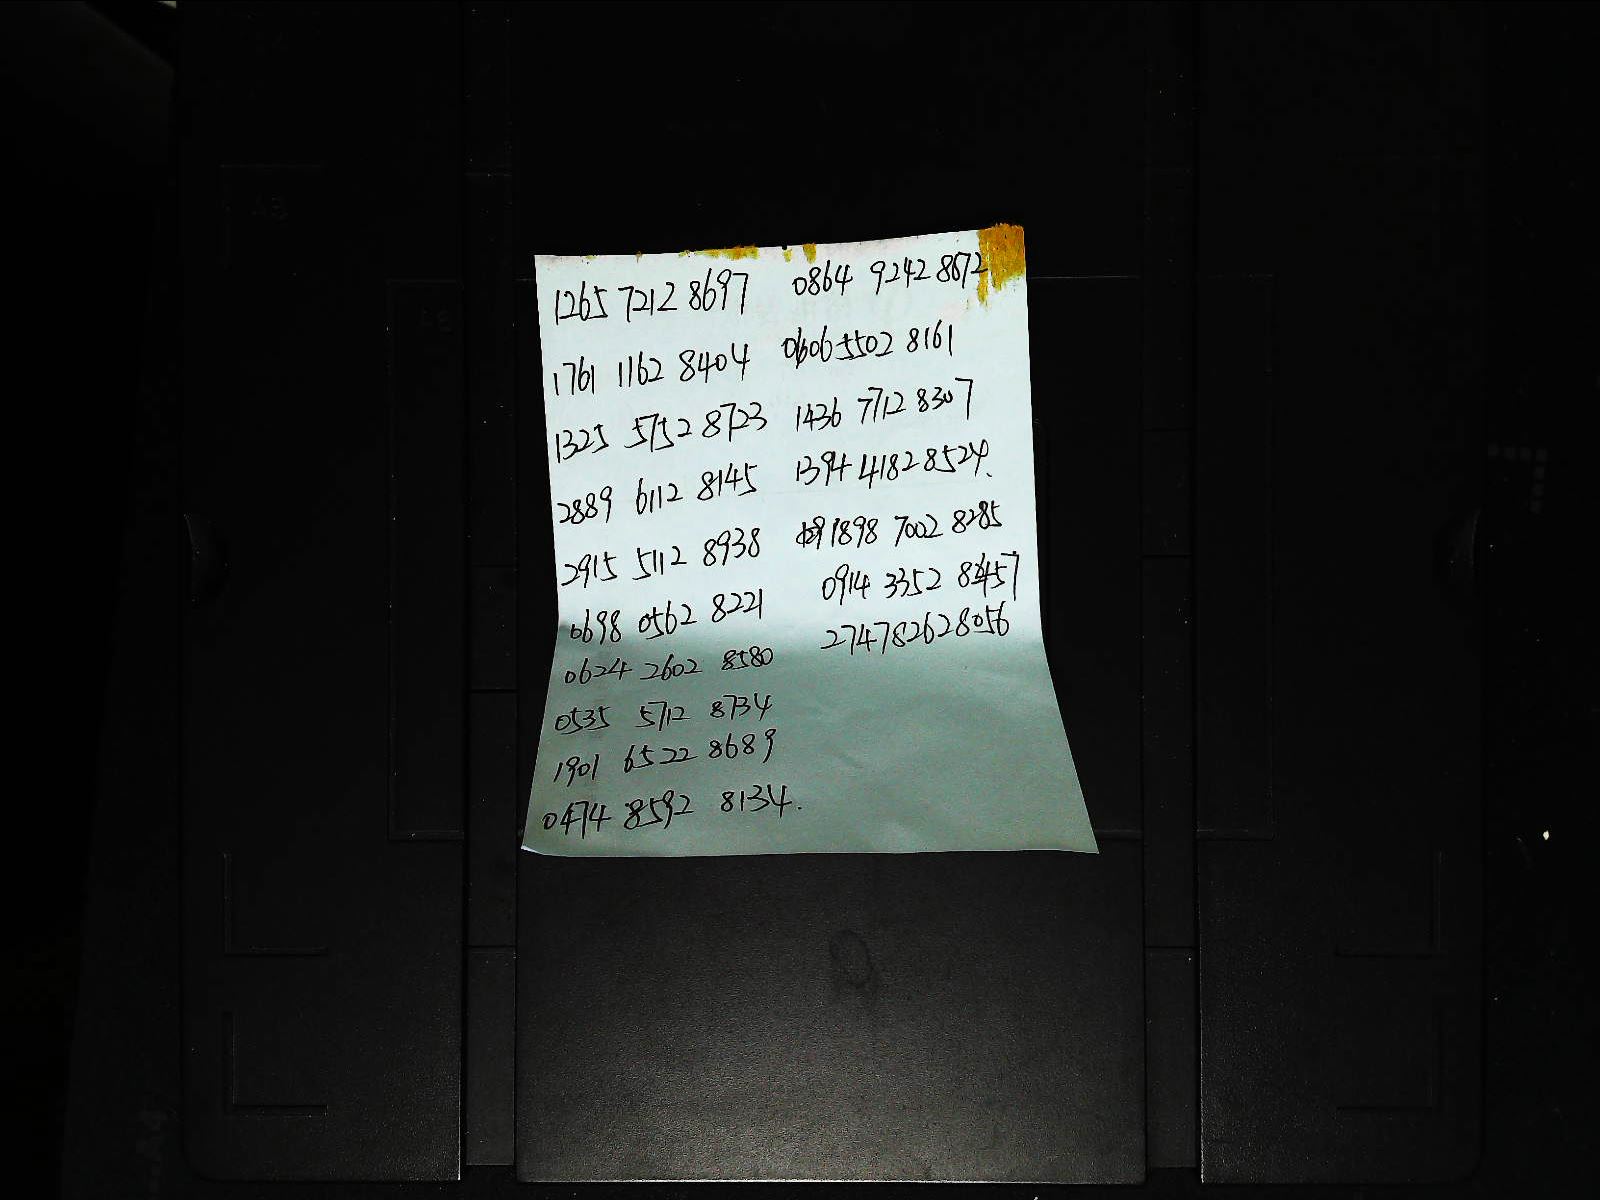 1265 7212 8697
1761 1162 8404
1325 5752 8723
2889 6112 8145
2915 5112 8938
0698 0562 8221
0624 2602 8580
0535 5712 8734
1901 6522 8689
0474 8592 8134.
0864 9242 8672
0606 5502 8161
1436 7712 8307
1394 4182 8524.
1898 7002 8285
0914 3352 8457
274782628056